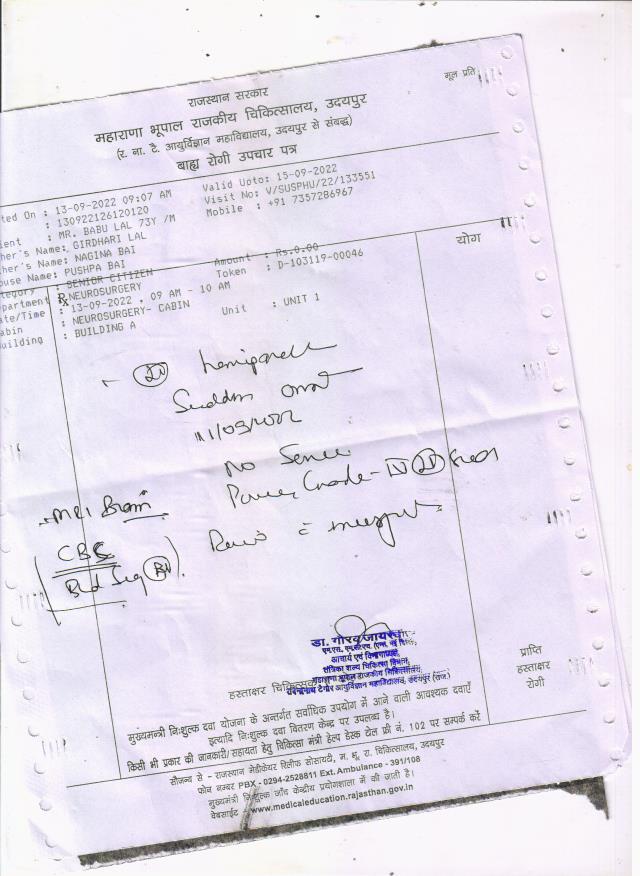 मूल प्रति
राजस्थान सरकार
महाराणा भूपाल राजकीय चिकित्सालय, उदयपुर
(र. ना. टै. आयुर्विज्ञान महाविद्यालय, उदयपुर से संबद्ध)
बाह्य रोगी उपचार पत्र
ted On : 13-09-2022 09:07 AM Valid Upto: 15-09-2022
: 130922126120120 Visit No: V/SUSPHU/22/133551
ient : MR. BABU LAL 73Y /M Mobile : +91 7357286967
her's Name: GIRDHARI LAL
ther's Name: NAGINA BAI
ouse Name: PUSHPA BAI Amount : Rs.0.00
tegory : SENIOR CITIZEN Token : D-103119-00046
partment : NEUROSURGERY
ate/Time : 13-09-2022 , 09 AM - 10 AM
abin : NEUROSURGERY- CABIN Unit : UNIT 1
uilding : BUILDING A
योग
Rx
Sudden onset
No
Power Grade - IV
MRI Brain
CBC
डा. गौरव
आचार्य एवं विभागाध्यक्ष
हस्ताक्षर चिकित्सक
प्राप्ति
हस्ताक्षर
रोगी
मुख्यमन्त्री निःशुल्क दवा योजना के अन्तर्गत सर्वाधिक उपयोग में आने वाली आवश्यक दवाएँ
इत्यादि निःशुल्क दवा वितरण केन्द्र पर उपलब्ध है।
किसी भी प्रकार की जानकारी/सहायता हेतु चिकित्सा मंत्री हेल्प डेस्क टोल फ्री नं. 102 पर सम्पर्क करें
सौजन्य से - राजस्थान मेडीकेयर रिलीफ सोसायटी, म. भू. रा. चिकित्सालय, उदयपुर
फोन नम्बर PBX - 0294-2528811 Ext. Ambulance - 391/108
मुख्यमंत्री निःशुल्क जाँच केन्द्रीय प्रयोगशाला में की जाती है।
वेबसाईट : www.medicaleducation.rajasthan.gov.in